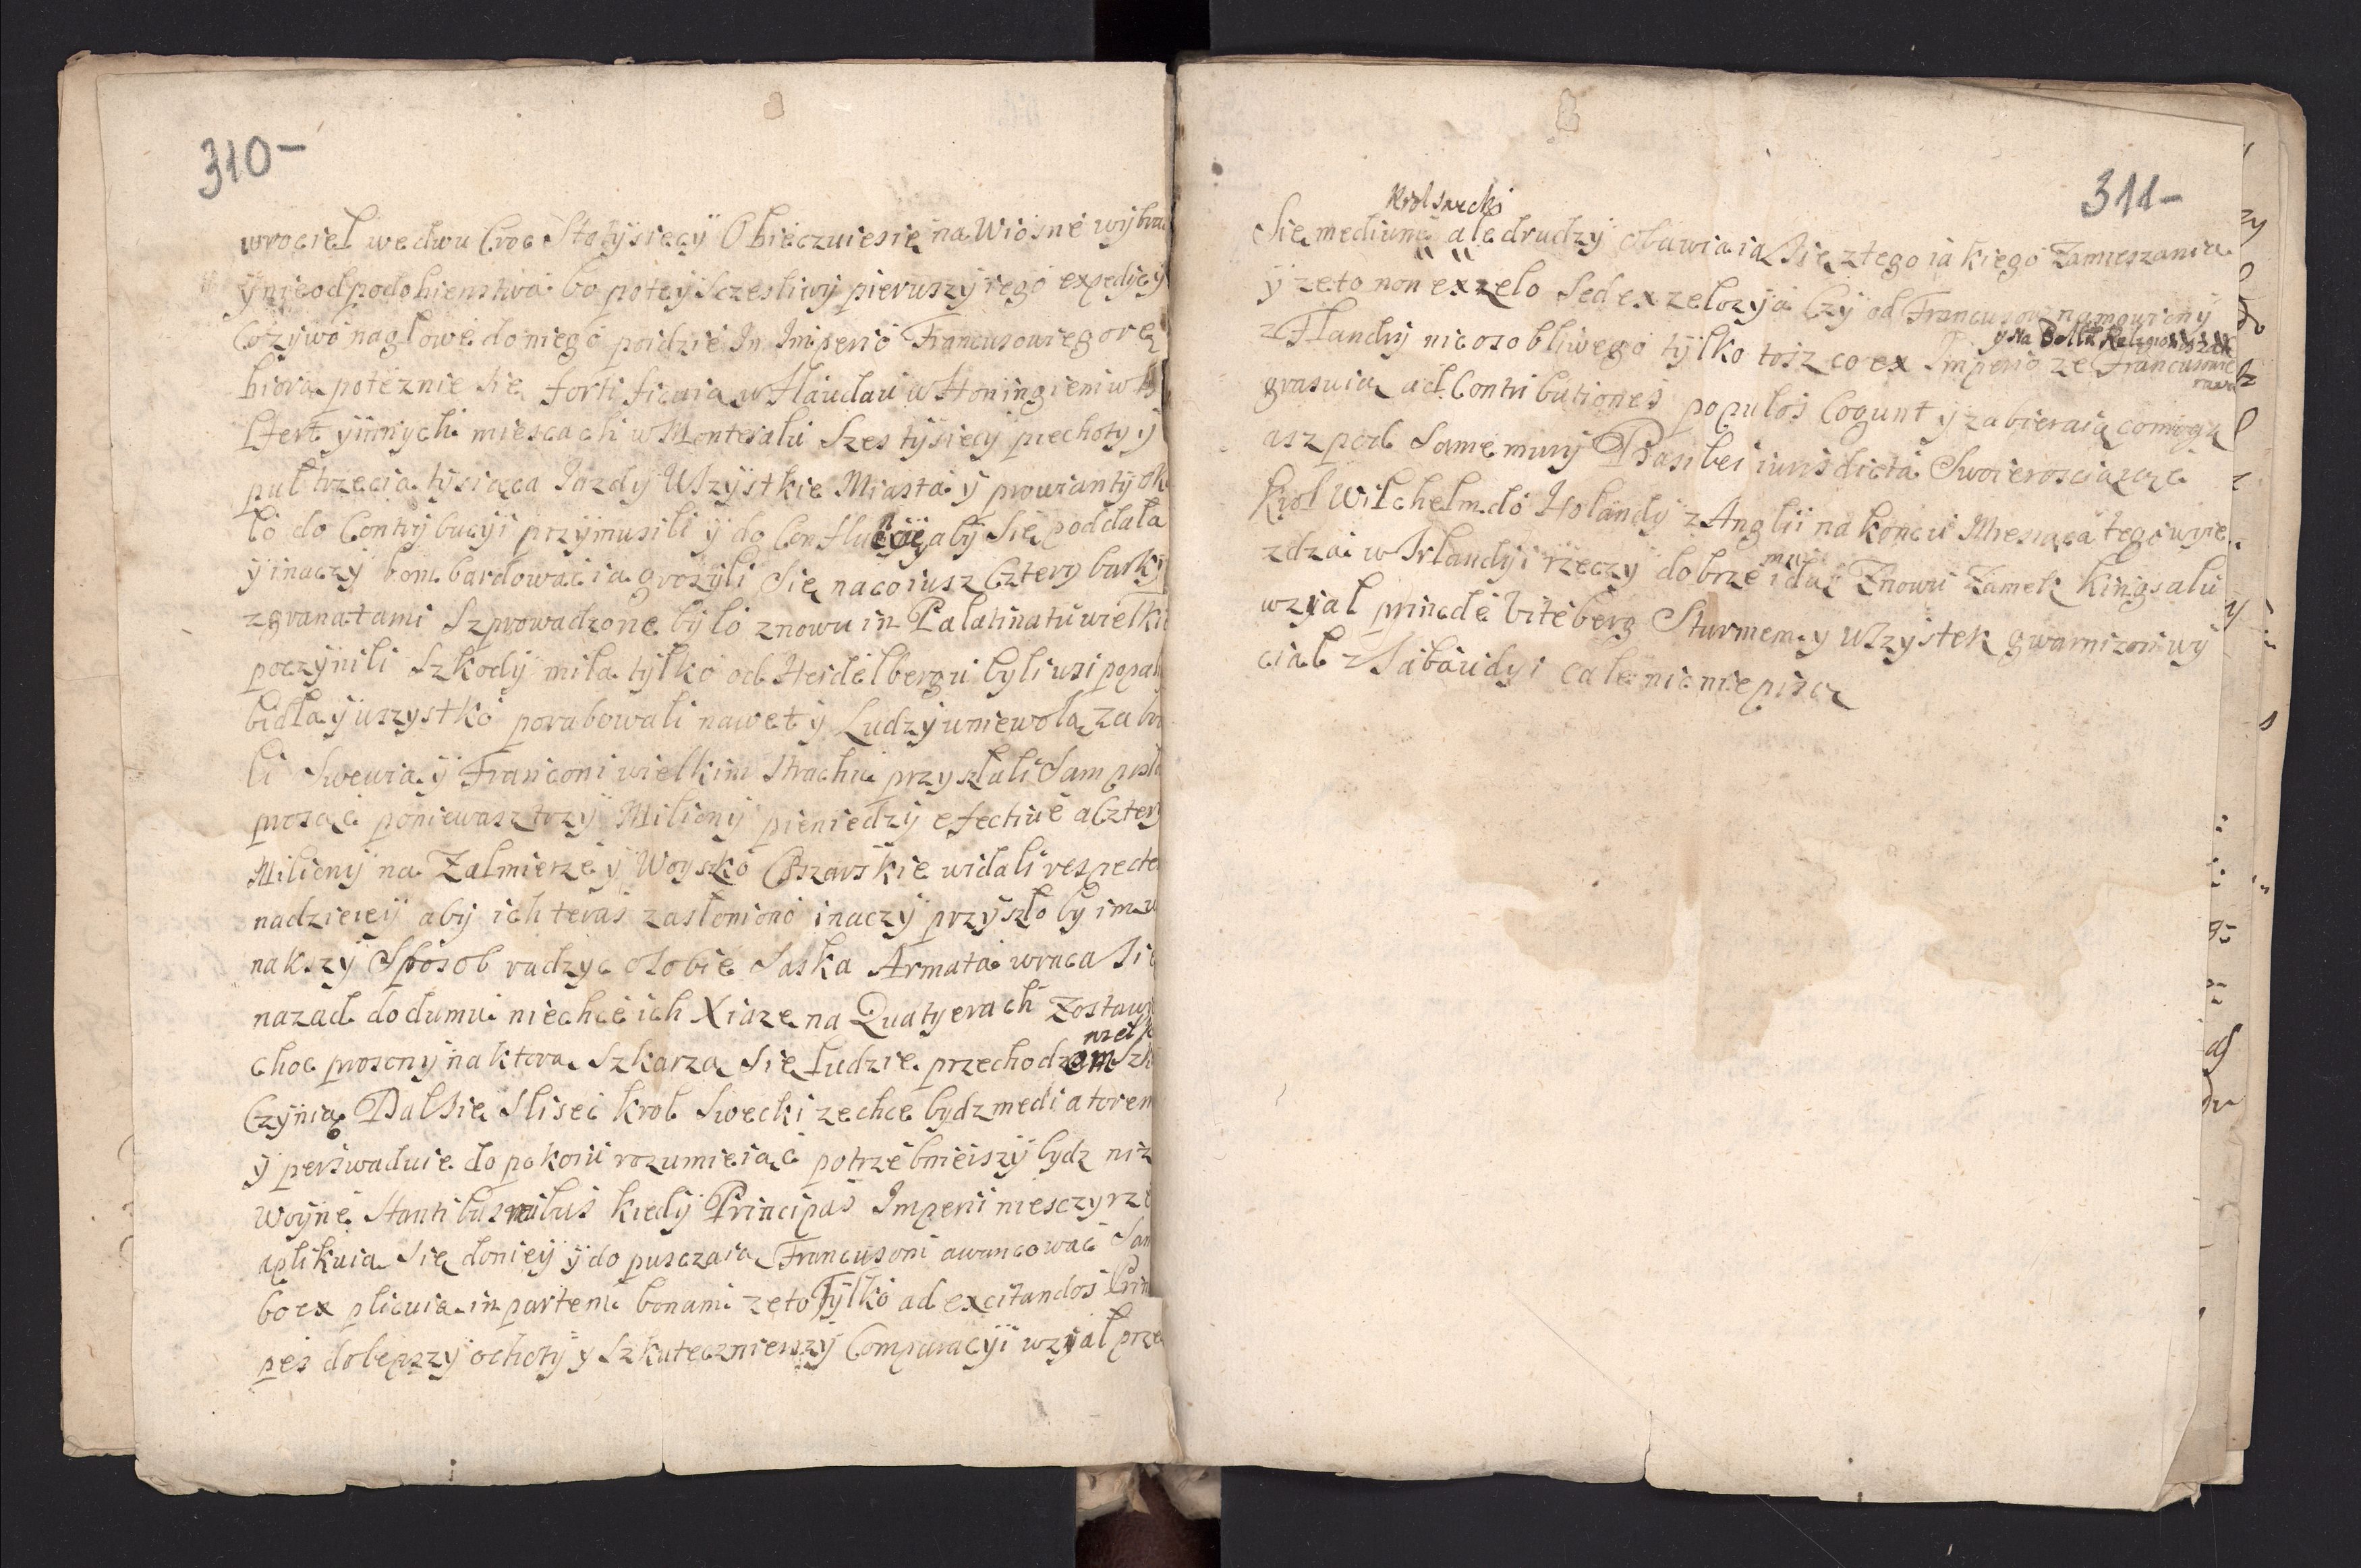 310-
wrociel wedwu Croc Sto tysięcy Obieczuie się na Wiosnę wybra
ÿ nie od podobienstwa bo po tey Sczesliwÿ pierwszÿ iego expedÿcÿ
Co zÿwo na głowe do niego poidzie In Imperio Francusowie gorę
biorą poteznie się fortificuią w Haudau w Honingieni w
Ltert ÿ innych miescach w Monterialu Szes tysięcy piechoty ÿ
pul trzecia tysiąca Jazdy Wszÿstkie Miasta ÿ prowianty ok
lo do Contrÿbucÿi przÿmusili ÿ do aby Się poddała
ÿ inaczÿ bombardować ią grozyli Się na co iusz Cztery barki
z granatami Szprowadzone było znowu in Palatinatu wielkie
poczÿnili Szkodÿ mila tÿlko od Heidelbergu byli wsi popali
bidła ÿ wszÿstko porabowali nawet ÿ Ludzÿ w niewolą zabra
li Swewia ÿ Franconi wielkim strachu przysłali Sam posła
prosąc poniewasz trzÿ Milionÿ pieniedzÿ efective a Cztery
Milionÿ na Zalmierze ÿ Woysko Cszarskie widali respecte
nadzieieÿ aby ich teras zasłoniono inaczÿ przÿszło by im
nakszÿ Sposob radzyc o sobie Saska Armata wraca Się
nazad do dumu niechce ich Xiaze na Quatyerach Zostaw
choc proscny na ktora Szkarzą Się Ludzie przechodząm Szk
Czÿnią Dał Się Slisec krol Swecki ze chce bydz mediatorem
ÿ perswaduie do pokoiu rozumieiąc potrzebnieiszÿ bydz niz
Woÿne Stantibus kiedÿ Principes Imperii niesczyrze
aplikuią Się do nieÿ ÿ dopusczaią Francusom awancować Sam
bo explicuia in partem bonam ze to Tylko ad excitandos Prin
pes do lepszÿ ochotÿ ÿ Szkutecznieiszÿ Comparacÿi wzÿal prze
311-
Krol swecki
Się medium ale drudzÿ obawiaią Się z tego iakiego Zamieszania
ÿ ze to non ex zelo Sed ex zelozyia Czÿ od Francusow namowionÿ
ÿ Na Bella Religionis
z Flandrÿ nic osobliwego tylko tosz co ex Imperio ze Francusowie
grasuią ad Contributiones populos Cogunt ÿ zabieraią co mogą
asz pod Same murÿ
Krol Wilchelm do Holandÿ z Anglii na końcu Miesiąca tego wyie
zdza w Irlandÿi rzeczy dobrze idą Znowu Zamek Kingsalu
wzial princde Viteberg Sturmem ÿ Wszystek gwarnizon wÿ
cial z Sabaudyi cale nic nie piszą